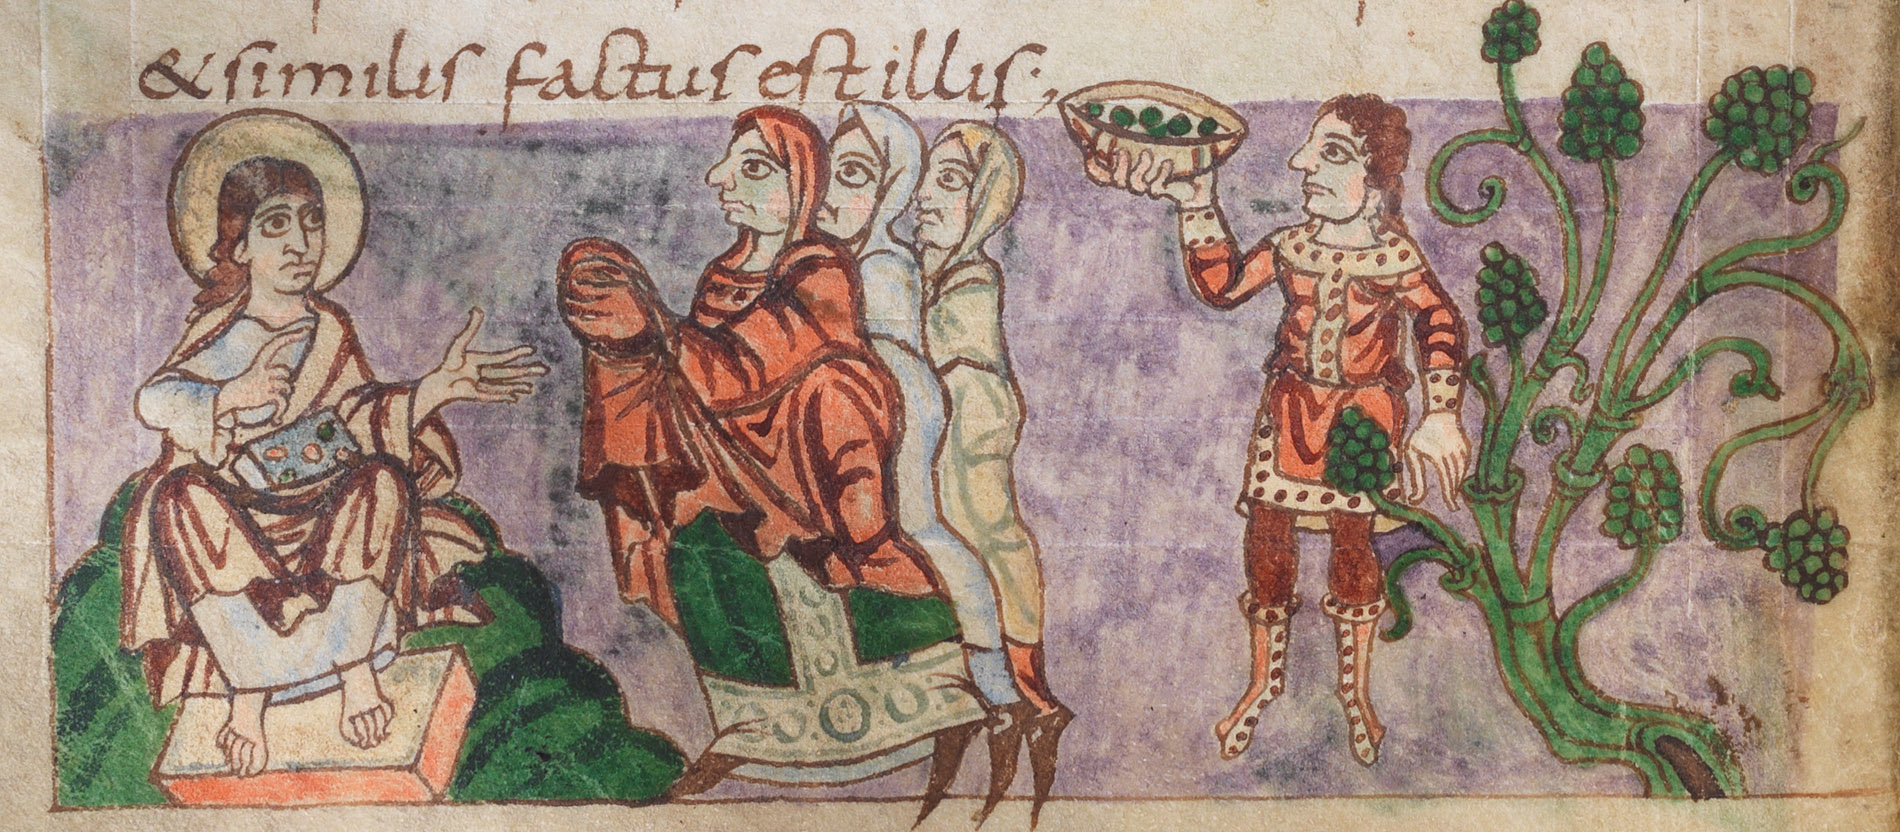 & similis factus est illis;